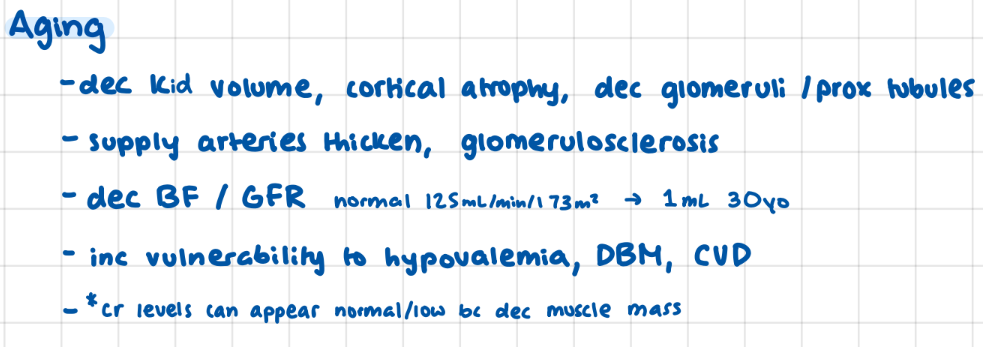 Aging
- dec kid volume, cortical atrophy, dec glomeruli / prox tubules
- supply arteries thicken, glomerulosclerosis
- dec BF / GFR normal 125mL/min/1 73m² → 1mL 30yo
- inc vulnerability to hypovalemia, DBM, CVD
- *cr levels can appear normal/low bc dec muscle mass